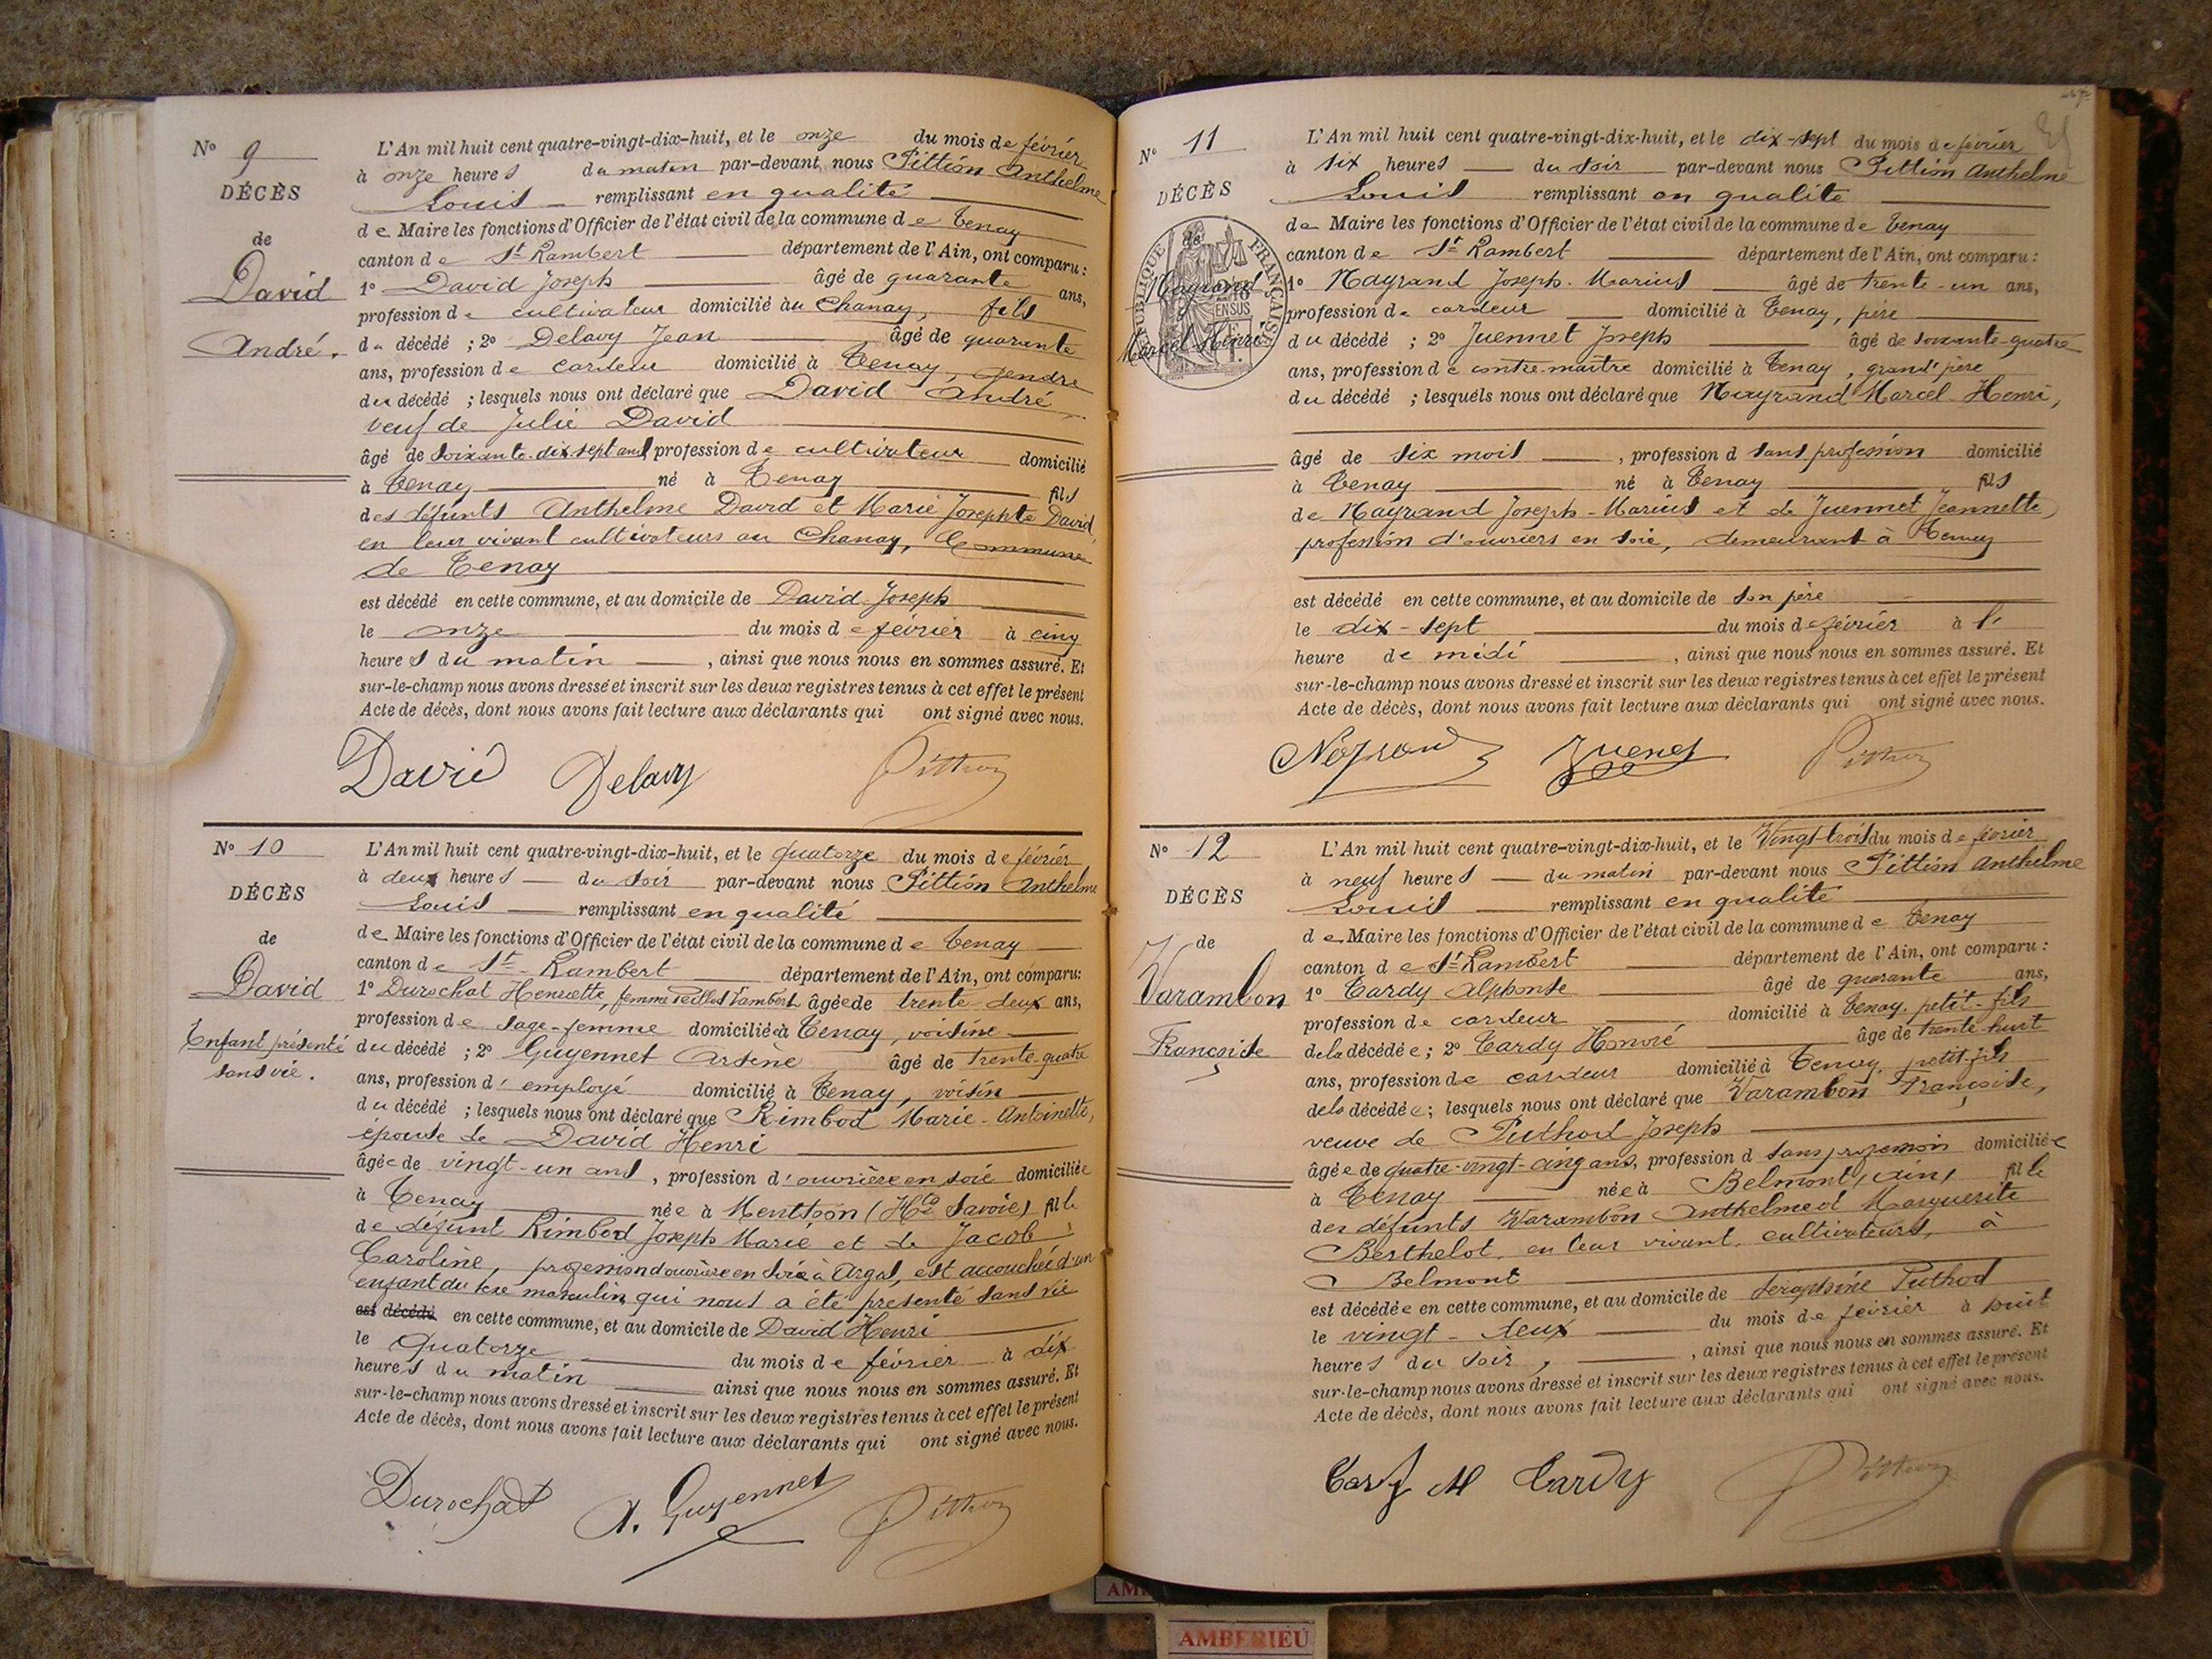 N° 9
DÉCÈS
de
David
André.
L'An mil huit cent quatre-vingt-dix-huit, et le onze du mois de février
à onze heures du matin par-devant nous Pittion Anthelme
Louis remplissant en qualité
de Maire les fonctions d'Officier de l'état civil de la commune de Tenay
canton de St Rambert département de l'Ain, ont comparu :
1° David Joseph âgé de quarante ans,
profession de cultivateur domicilié au Chanay, fils
du décédé ; 2° Delavy Jean âgé de quarante
ans, profession de cardeur domicilié à Tenay, gendre
du décédé ; lesquels nous ont déclaré que David André
veuf de Julie David
âgé de soixante-dix-sept ans profession de cultivateur domicilié
à Tenay né à Tenay fils
des défunts Anthelme David et Marie Josephte David,
en leur vivant cultivateurs au Chanay, Commune
de Tenay
est décédé en cette commune, et au domicile de David Joseph
le onze du mois de février à cinq
heures du matin , ainsi que nous nous en sommes assuré. Et
sur-le-champ nous avons dressé et inscrit sur les deux registres tenus à cet effet le présent
Acte de décès, dont nous avons fait lecture aux déclarants qui ont signé avec nous.
David Delavy Pittion
N° 10
DÉCÈS
de
David
Enfant présenté
sans vie.
L'An mil huit cent quatre-vingt-dix-huit, et le quatorze du mois de février
à deux heures du soir par-devant nous Pittion Anthelme
Louis remplissant en qualité
de Maire les fonctions d'Officier de l'état civil de la commune de Tenay
canton de St Rambert département de l'Ain, ont comparu :
1° Durochat Henriette, femme Lambert âgée de trente-deux ans,
profession de sage-femme domiciliée à Tenay, voisine
du décédé ; 2° Guyennet Arsène âgé de trente-quatre
ans, profession d'employé domicilié à Tenay, voisin
du décédé ; lesquels nous ont déclaré que Rimbod Marie-Antoinette,
épouse de David Henri
âgée de vingt-un ans , profession d'ouvrière en soie domiciliée
à Tenay née à Menthon (Hte Savoie) fille
de défunt Rimbod Joseph Marie et de Jacob
Caroline, profession d'ouvrière en soie à Argis, est accouchée d'un
enfant du sexe masculin, qui nous a été présenté sans vie
est décédé en cette commune, et au domicile de David Henri
le Quatorze du mois de février à dix
heures du matin ainsi que nous nous en sommes assuré. Et
sur-le-champ nous avons dressé et inscrit sur les deux registres tenus à cet effet le présent
Acte de décès, dont nous avons fait lecture aux déclarants qui ont signé avec nous.
Durochat A. Guyennet Pittion
N° 11
DÉCÈS
de
Mayrand
Marcel Henri
RÉPUBLIQUE FRANÇAISE
L'An mil huit cent quatre-vingt-dix-huit, et le dix-sept du mois de février
à six heures du soir par-devant nous Pittion Anthelme
Louis remplissant en qualité
de Maire les fonctions d'Officier de l'état civil de la commune de Tenay
canton de St Rambert département de l'Ain, ont comparu :
1° Mayrand Joseph-Marius âgé de trente-un ans,
profession de cardeur domicilié à Tenay, père
du décédé ; 2° Juennet Joseph âgé de soixante-quatre
ans, profession de contre-maître domicilié à Tenay, grand'père
du décédé ; lesquels nous ont déclaré que Mayrand Marcel Henri,
âgé de six mois , profession d sans profession domicilié
à Tenay né à Tenay fils
de Mayrand Joseph-Marius et de Juennet Jeannette,
profession d'ouvriers en soie, demeurant à Tenay
est décédé en cette commune, et au domicile de son père
le dix-sept du mois de février à l'
heure de midi , ainsi que nous nous en sommes assuré. Et
sur-le-champ nous avons dressé et inscrit sur les deux registres tenus à cet effet le présent
Acte de décès, dont nous avons fait lecture aux déclarants qui ont signé avec nous.
Pittion
N° 12
DÉCÈS
de
Varambon
Françoise
L'An mil huit cent quatre-vingt-dix-huit, et le Vingt-trois du mois de février
à neuf heures du matin par-devant nous Pittion Anthelme
Louis remplissant en qualité
de Maire les fonctions d'Officier de l'état civil de la commune de Tenay
canton de St Rambert département de l'Ain, ont comparu :
1° Cardy Alphonse âgé de quarante ans,
profession de cardeur domicilié à Tenay, petit-fils
de la décédée ; 2° Cardy Honoré âgé de trente-huit
ans, profession de cardeur domicilié à Tenay, petit-fils
de la décédée ; lesquels nous ont déclaré que Varambon Françoise,
veuve de Puthod Joseph
âgée de quatre-vingt-cinq ans, profession d sans profession domiciliée
à Tenay née à Belmont, Ain, fille
des défunts Varambon Anthelme et Marguerite
Berthelot, en leur vivant, cultivateurs, à
Belmont
est décédée en cette commune, et au domicile de Séraphine Puthod
le vingt-deux du mois de février à huit
heures du soir, , ainsi que nous nous en sommes assuré. Et
sur-le-champ nous avons dressé et inscrit sur les deux registres tenus à cet effet le présent
Acte de décès, dont nous avons fait lecture aux déclarants qui ont signé avec nous.
Cardy H Cardy Pittion
AMBERIEU